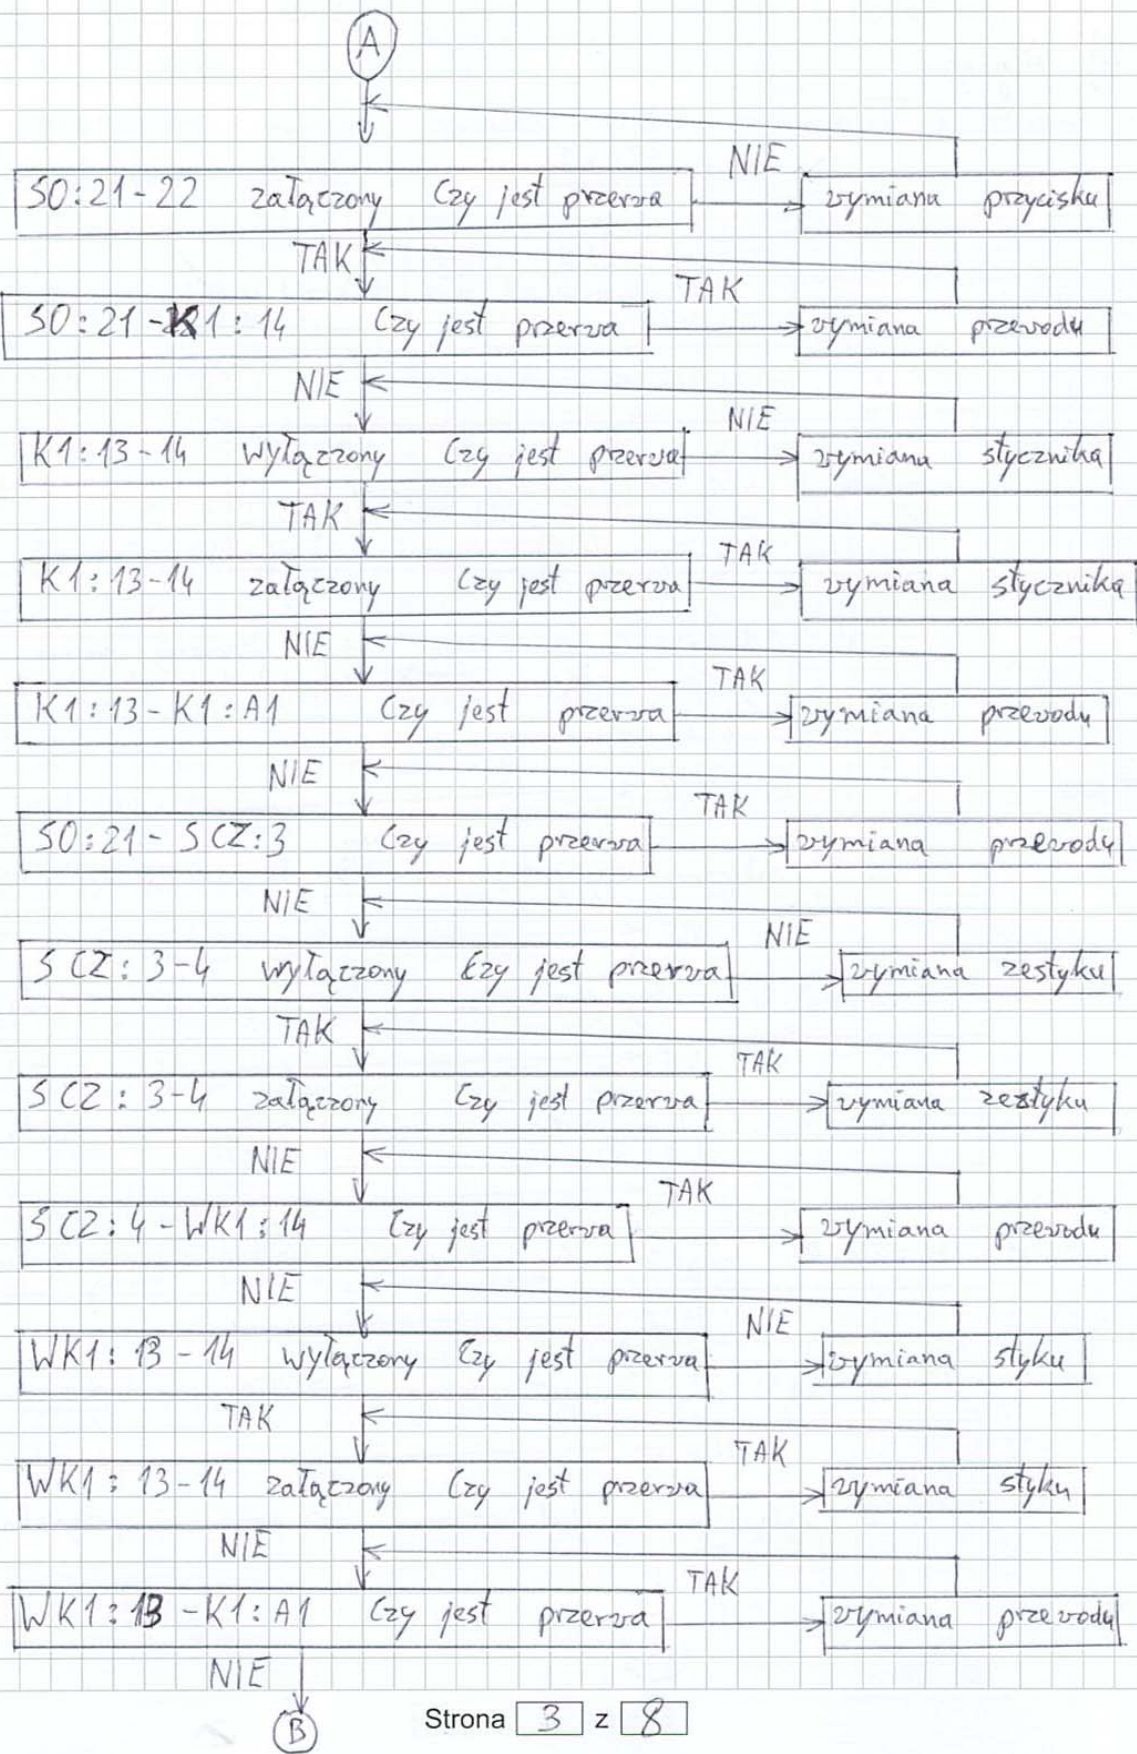 A
NIE
S0:21-22 załączony Czy jest przerwa wymiana przycisku
TAK
TAK
S0:21-K1:14 Czy jest przerwa wymiana przewodu
NIE
NIE
K1:13-14 wyłączony Czy jest przerwa wymiana stycznika
TAK
TAK
K1:13-14 załączony Czy jest przerwa wymiana stycznika
NIE
TAK
K1:13-K1:A1 Czy jest przerwa wymiana przewodu
NIE
TAK
S0:21-SCZ:3 Czy jest przerwa wymiana przewodu
NIE
NIE
SCZ:3-4 wyłączony Czy jest przerwa wymiana zestyku
TAK
TAK
SCZ:3-4 załączony Czy jest przerwa wymiana zestyku
NIE
TAK
SCZ:4-WK1:14 Czy jest przerwa wymiana przewodu
NIE
NIE
WK1:13-14 wyłączony Czy jest przerwa wymiana styku
TAK
TAK
WK1:13-14 załączony Czy jest przerwa wymiana styku
NIE
TAK
WK1:13-K1:A1 Czy jest przerwa wymiana przewodu
NIE
B
Strona 3 z 8